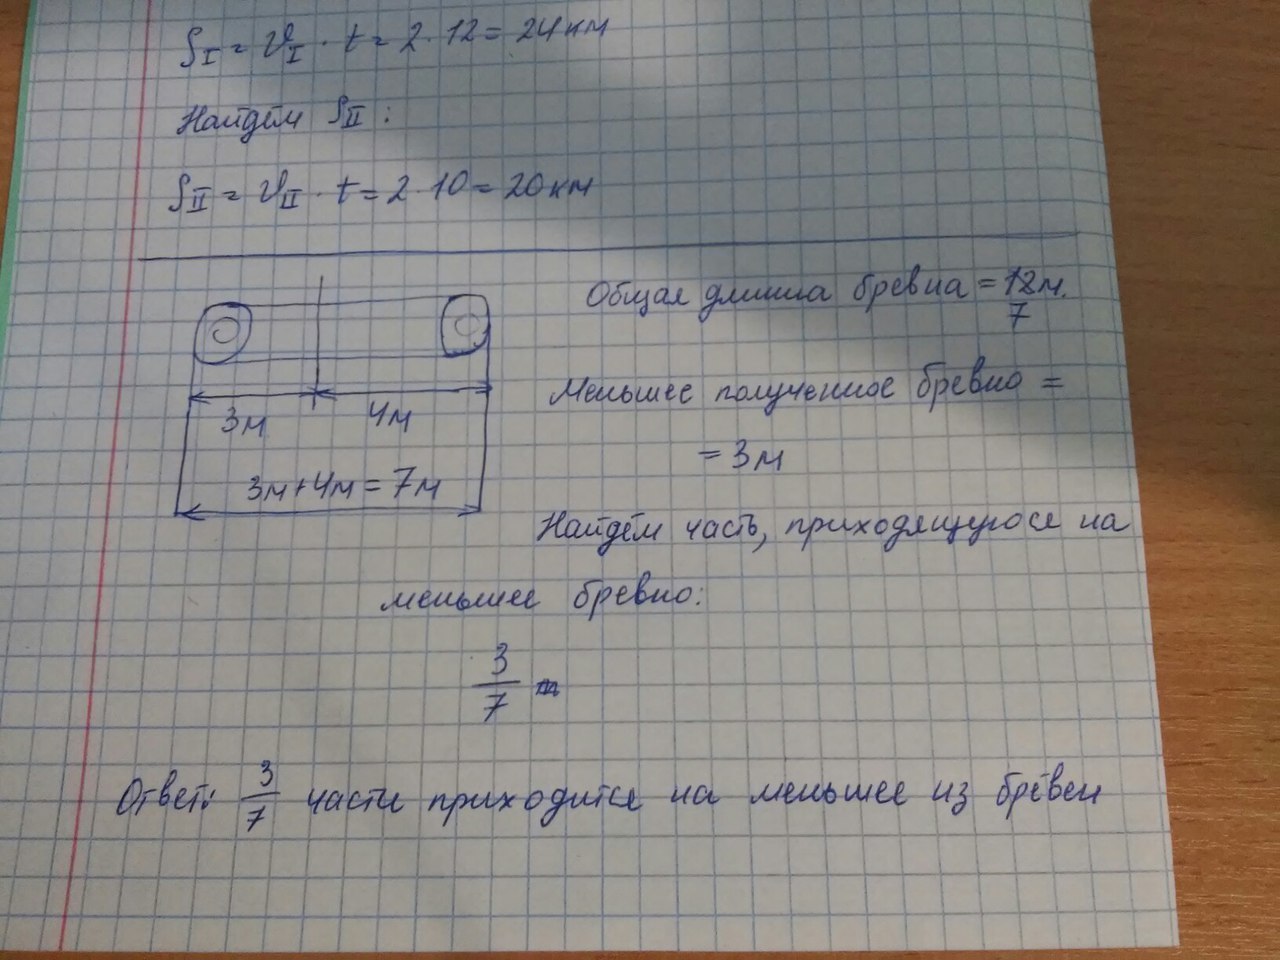 S_I = V_I · t = 2 · 12 = 24 км
Найдём S_II :
S_II = V_II · t = 2 · 10 = 20 км
Общая длина бревна = 12 м.
7
3м
4м
3м+4м = 7м
Меньшее полученное бревно =
= 3м
Найдём часть, приходящуюся на
меньшее бревно:
3/7
Ответ: 3/7 части приходится на меньшее из брёвен